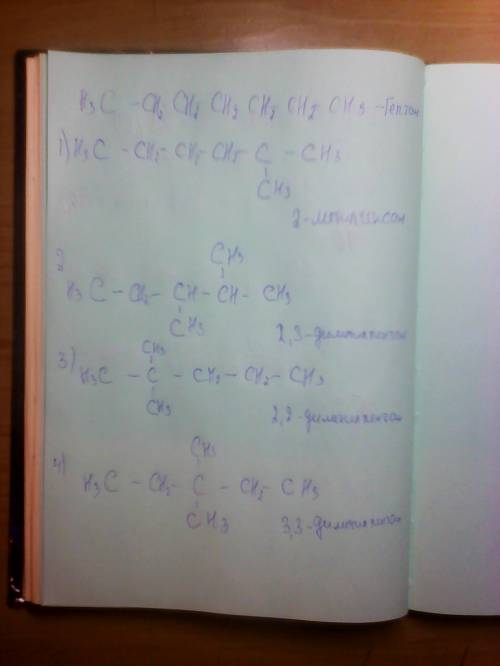 H₃C - CH₂ CH₂ CH₂ CH₂ CH₂ CH3 - Гептан
1) H₃C - CH₂ - CH₂ - CH₂ - C - CH3
CH3
2-метилгексан
2
CH3
H₃C - CH₂ - CH - CH - CH3
CH3
2,3-диметилпентан
3)
CH3
H₃C - C - CH₂ - CH₂ - CH3
CH3
2,2-диметилпентан
4)
CH3
H₃C - CH₂ - C - CH₂ - CH3
CH3
3,3-диметилпентан